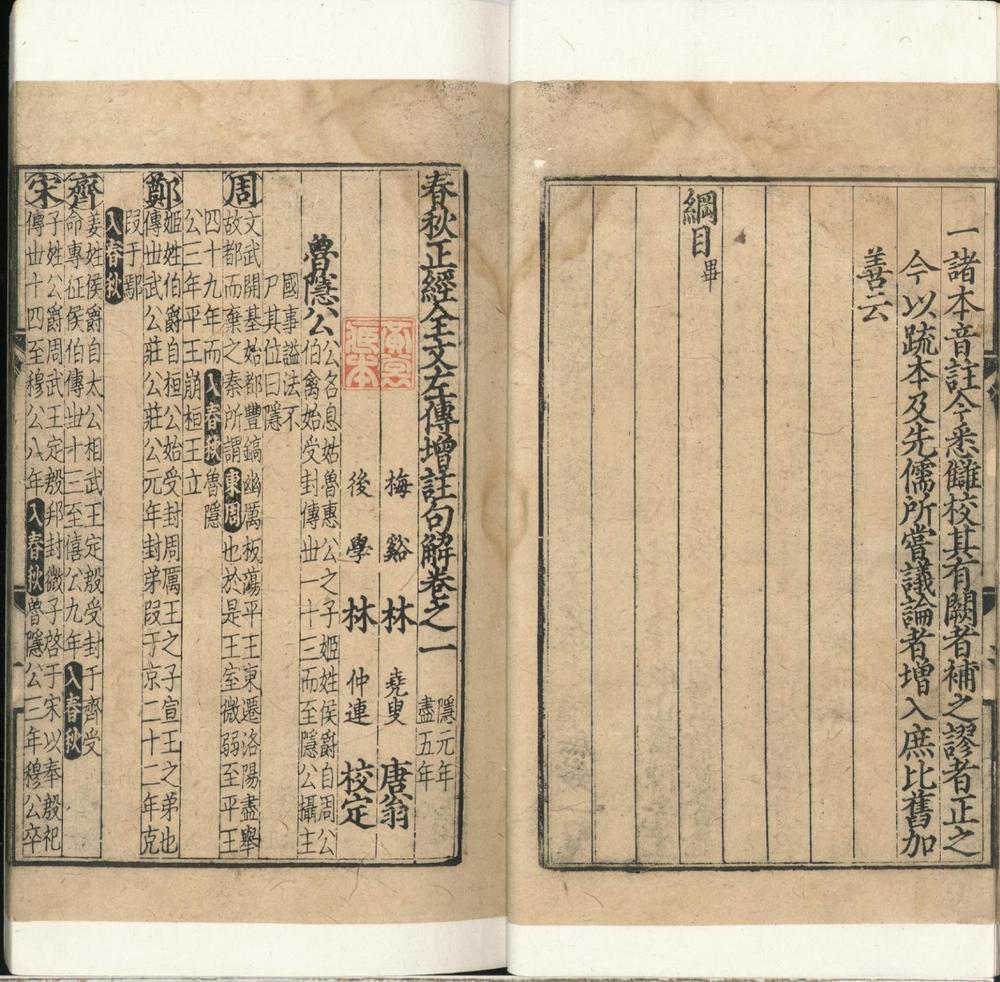 一諸本音註今悉讎校其有闕者補之謬者正之
今以疏本及先儒所嘗議論者增入庶比舊加
善云
綱目畢
春秋正經全文左傳增註句解卷之一
隱元年
盡五年
梅谿林堯叟唐翁
後學林仲連校定
魯隱公
公名息姑魯惠公之子姬姓侯爵自周公
伯禽始受封傳世一十三而至隱公攝主
國事謚法不
尸其位曰隱
周
文武開基始都豐鎬幽厲板蕩平王東遷洛陽盡舉
故都而棄之秦所謂東周也於是王室微弱至平王
四十九年而入春秋魯隱
公三年平王崩桓王立
鄭
姬姓伯爵自桓公始受封周厲王之子宣王之弟也
傳世武公莊公莊公元年封弟段于京二十二年克
段于鄢
入春秋
齊
姜姓侯爵自太公相武王定殷受封于齊受
命專征侯伯傳世十三至僖公九年入春秋
宋
子姓公爵周武王定殷邦封微子啓于宋以奉殷祀
傳世十四至穆公八年入春秋魯隱公三年穆公卒